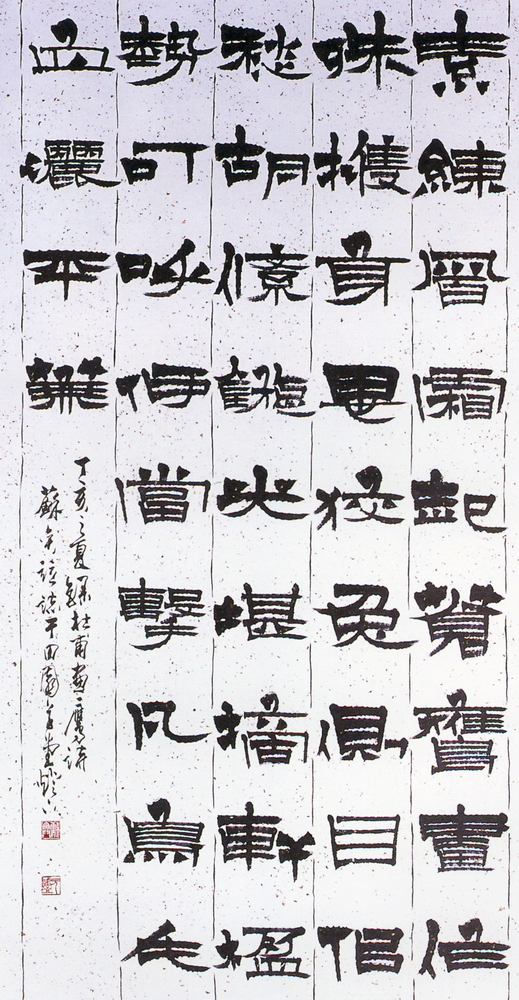 素練風霜起蒼鷹畫作
殊㩳身思狡兔側目似
愁胡絛鏇光堪摘軒楹
勢可呼何當擊凡鳥毛
血灑平蕪
丁亥之夏錄杜甫畫鷹詩
蘇 於田園